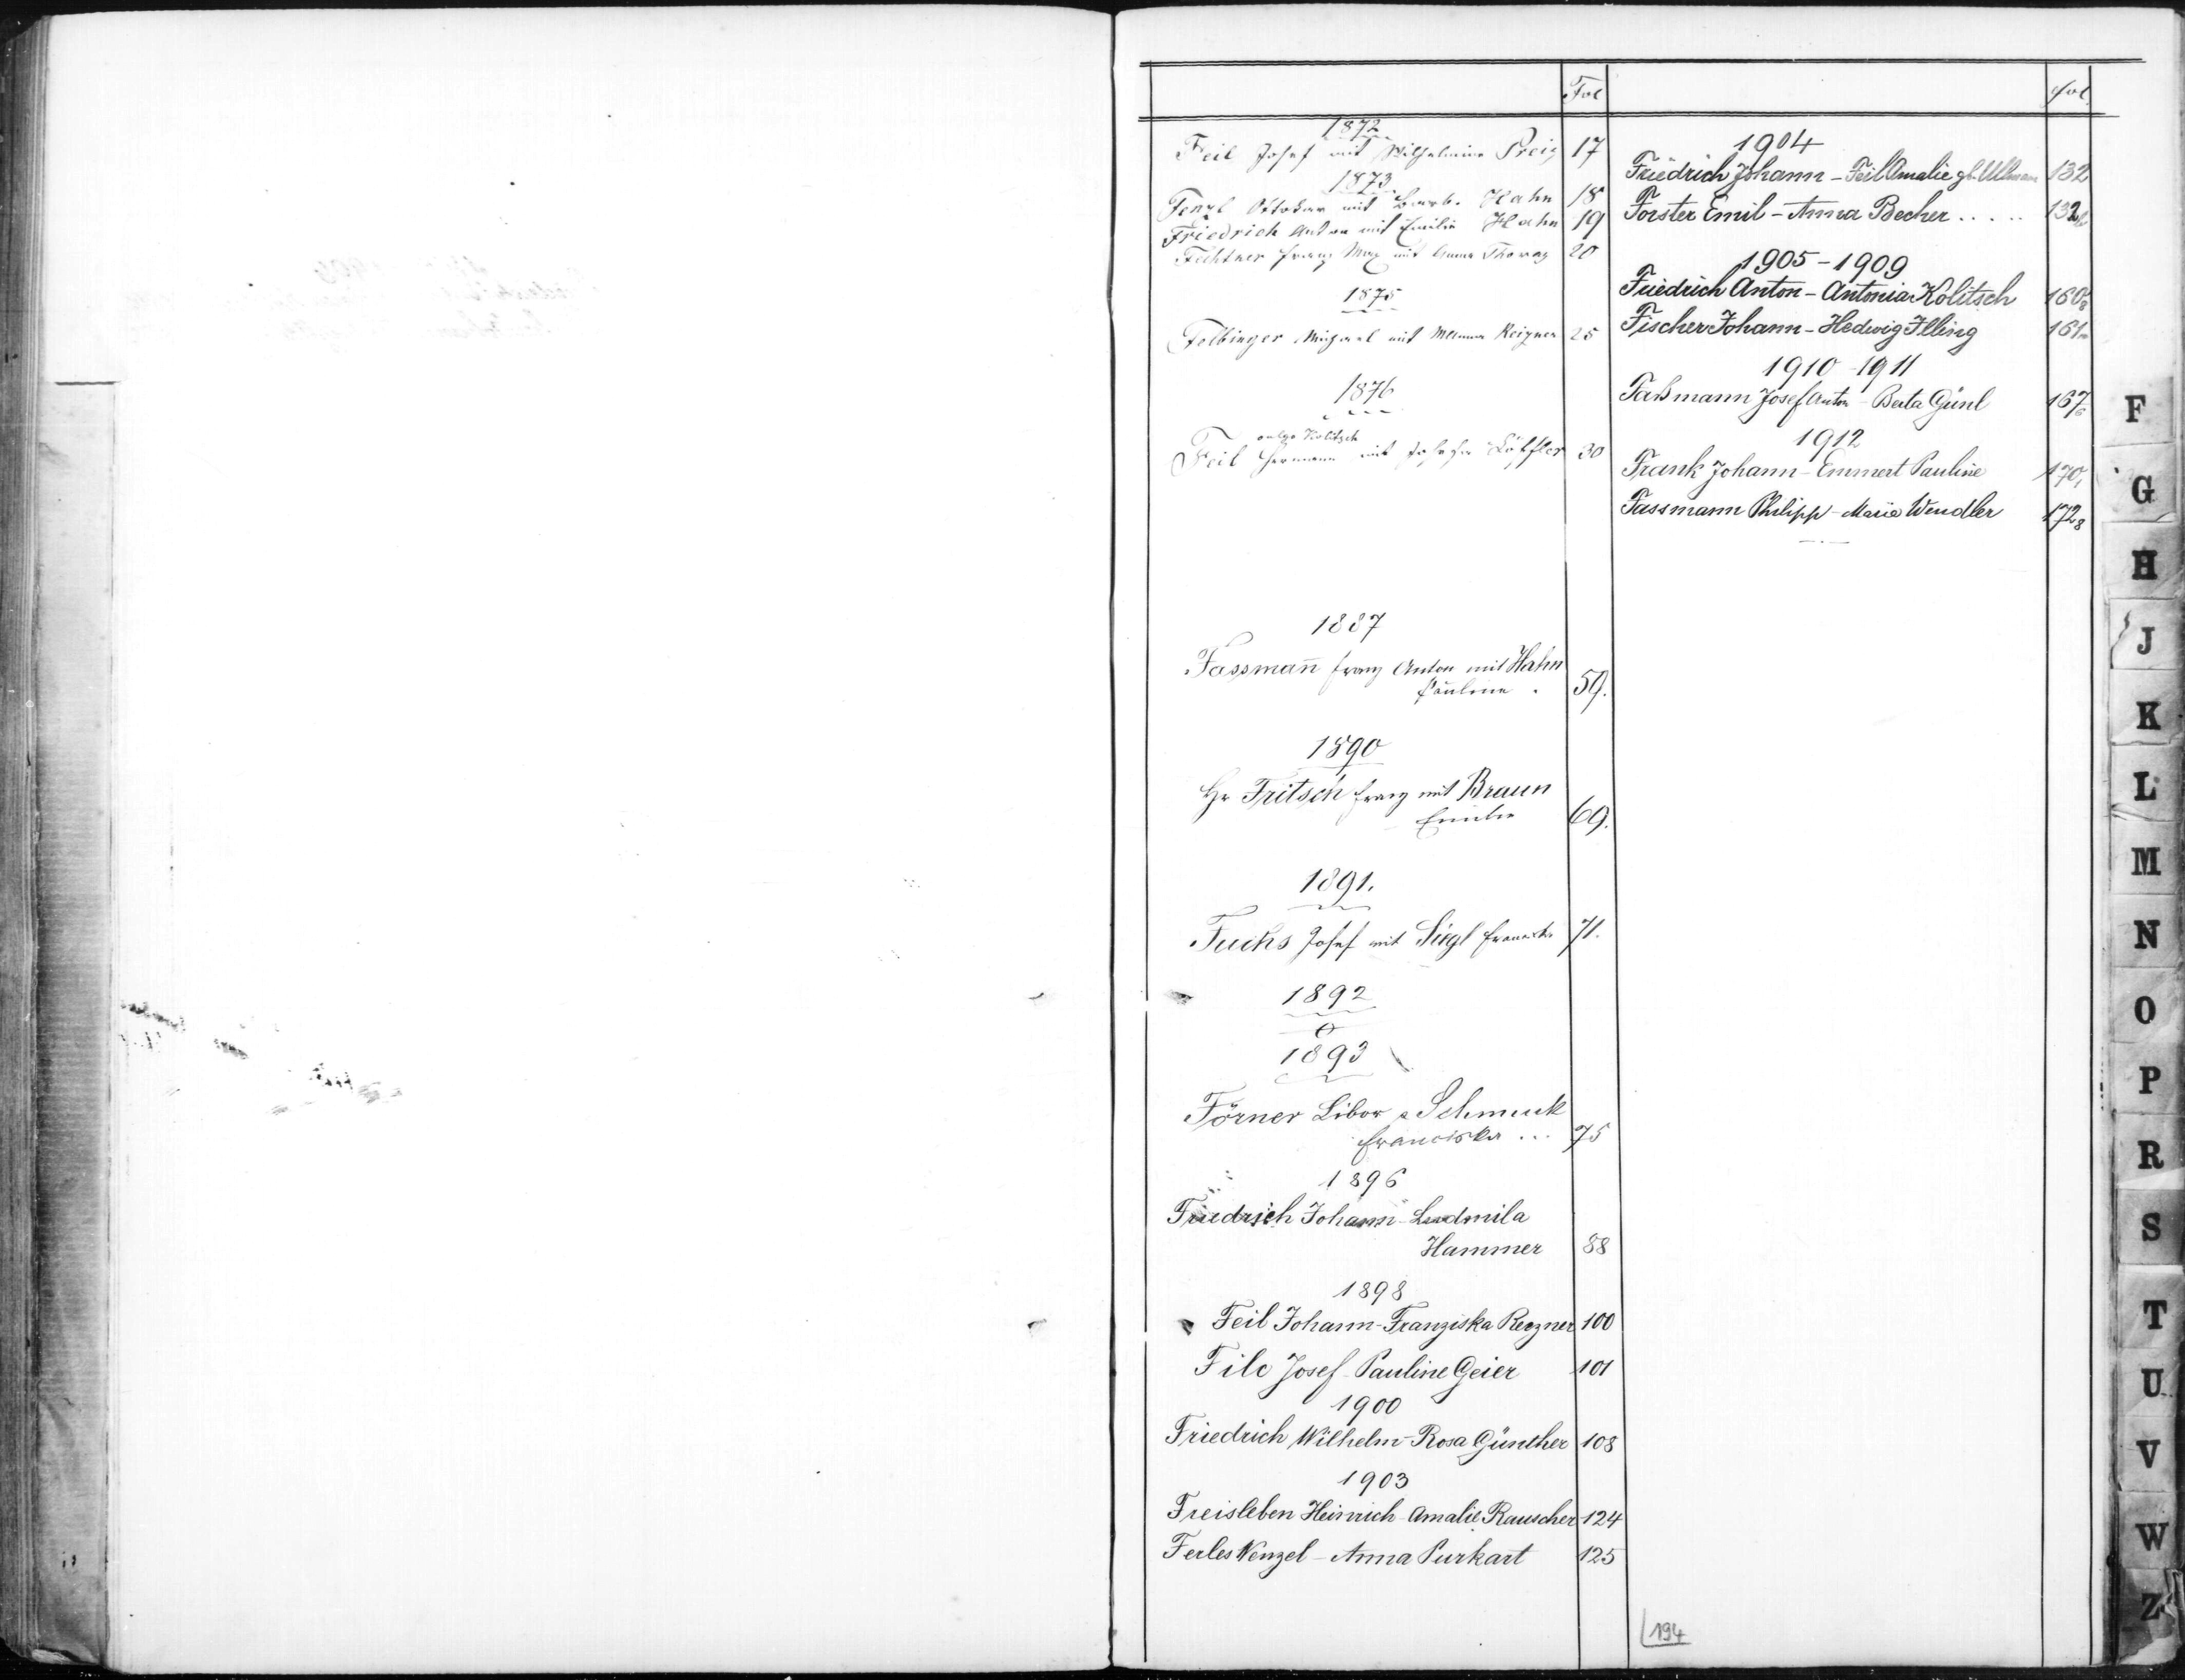 Fol
1872
Feil Josef mit Wilhelmine Preiz 17
1873
Fenzl Ottokar mit Barb. Hahn 18
Friedrich Anton mit Emilie Hahn 19
Fechtner Franz Max mit Anna 20
1875
Folbinger Michael mit 25
1876
vulgo Kolitzch
Feil Hermann mit Josefa Löffler 30
1887
Fassman̄ Franz Anton mit Hahn
Pauline . 59.
1890
Hr Fritsch Franz mit Braun
Emilie 69.
1891.
Fuchs Josef mit Siegl 71.
1892
0
1893
Förner Libor & Schmuck
Franciska ... 75
1896
Friedrich Johann - Ludmila
Hammer 88
1898
Feil Johann - Franziska Reizner 100
File Josef - Pauline Geier 101
1900
Friedrich Wilhelm - Rosa Günther 108
1903
Freisleben Heinrich - Amalie Rauscher 124
Ferles Wenzel - Anna Purkart 125
fol.
1904
Friedrich Johann - Feil Amalie gb. Ullmann 132
Forster Emil - Anna Becher ..... 132
1905 - 1909
Friedrich Anton - Antonia Kolitsch 160
Fischer Johann - Hedwig Illing 161
1910 - 1911
Faßmann Josef Anton - Berta Günl 167
1912
Frank Johann - Emmert Pauline 170
Fassmann Philipp - Marie Wendler 172 8
194
F
G
H
J
K
L
M
N
O
P
R
S
T
U
V
W
Z